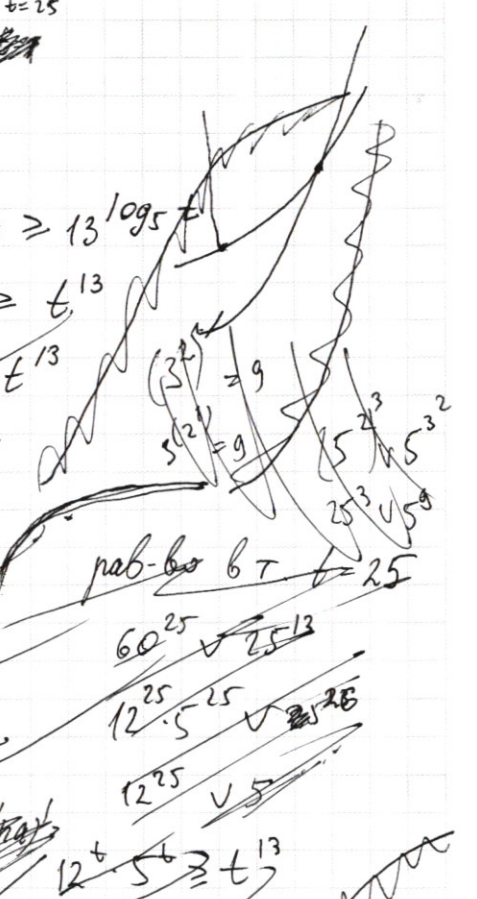 t=25
≥ 13^log₅ t
≥ t^13
t^13
(3^2)^1 = 9
3^(2^1) = 9
(5^2)^3 ∨ 5^3^2
25^3 ∨ 5^9
рав-во в т t=25
60^25 ∨ 25^13
12^25 · 5^25 ∨ 5^26
12^25 ∨ 5
12^t · 5^t ≥ t^13